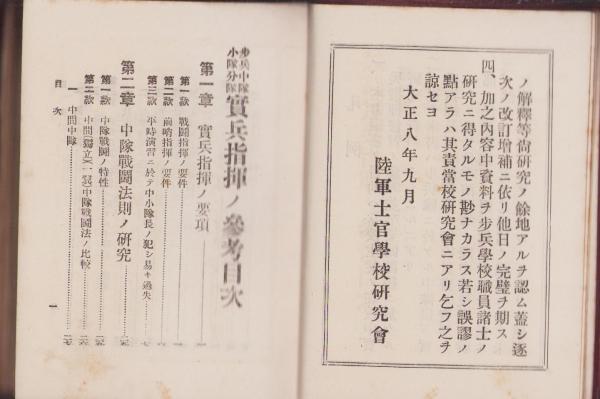 ノ解釋等尙硏究ノ餘地アルヲ認ム蓋シ逐
次ノ改訂增補ニ依リ他日ノ完璧ヲ期ス
四、加之內容中資料ヲ步兵學校職員諸士ノ
硏究ニ得タルモノ尠ナカラス若シ誤謬ノ
點アラハ其責當校硏究會ニアリ乞フ之ヲ
諒セヨ
大正八年九月
陸軍士官學校硏究會
步兵中隊
小隊分隊
實兵指揮ノ參考目次
第一章 實兵指揮ノ要項
第一款 戰鬪指揮ノ要件
第二款 前哨指揮ノ要件
第三款 平時演習ニ於テ中小隊長ノ犯シ易キ過失
第二章 中隊戰鬪法則ノ硏究
第一款 中隊戰鬪ノ特性
第二款 中間(獨立)(一翼)中隊戰鬪法ノ比較
一 中間中隊
目次
一